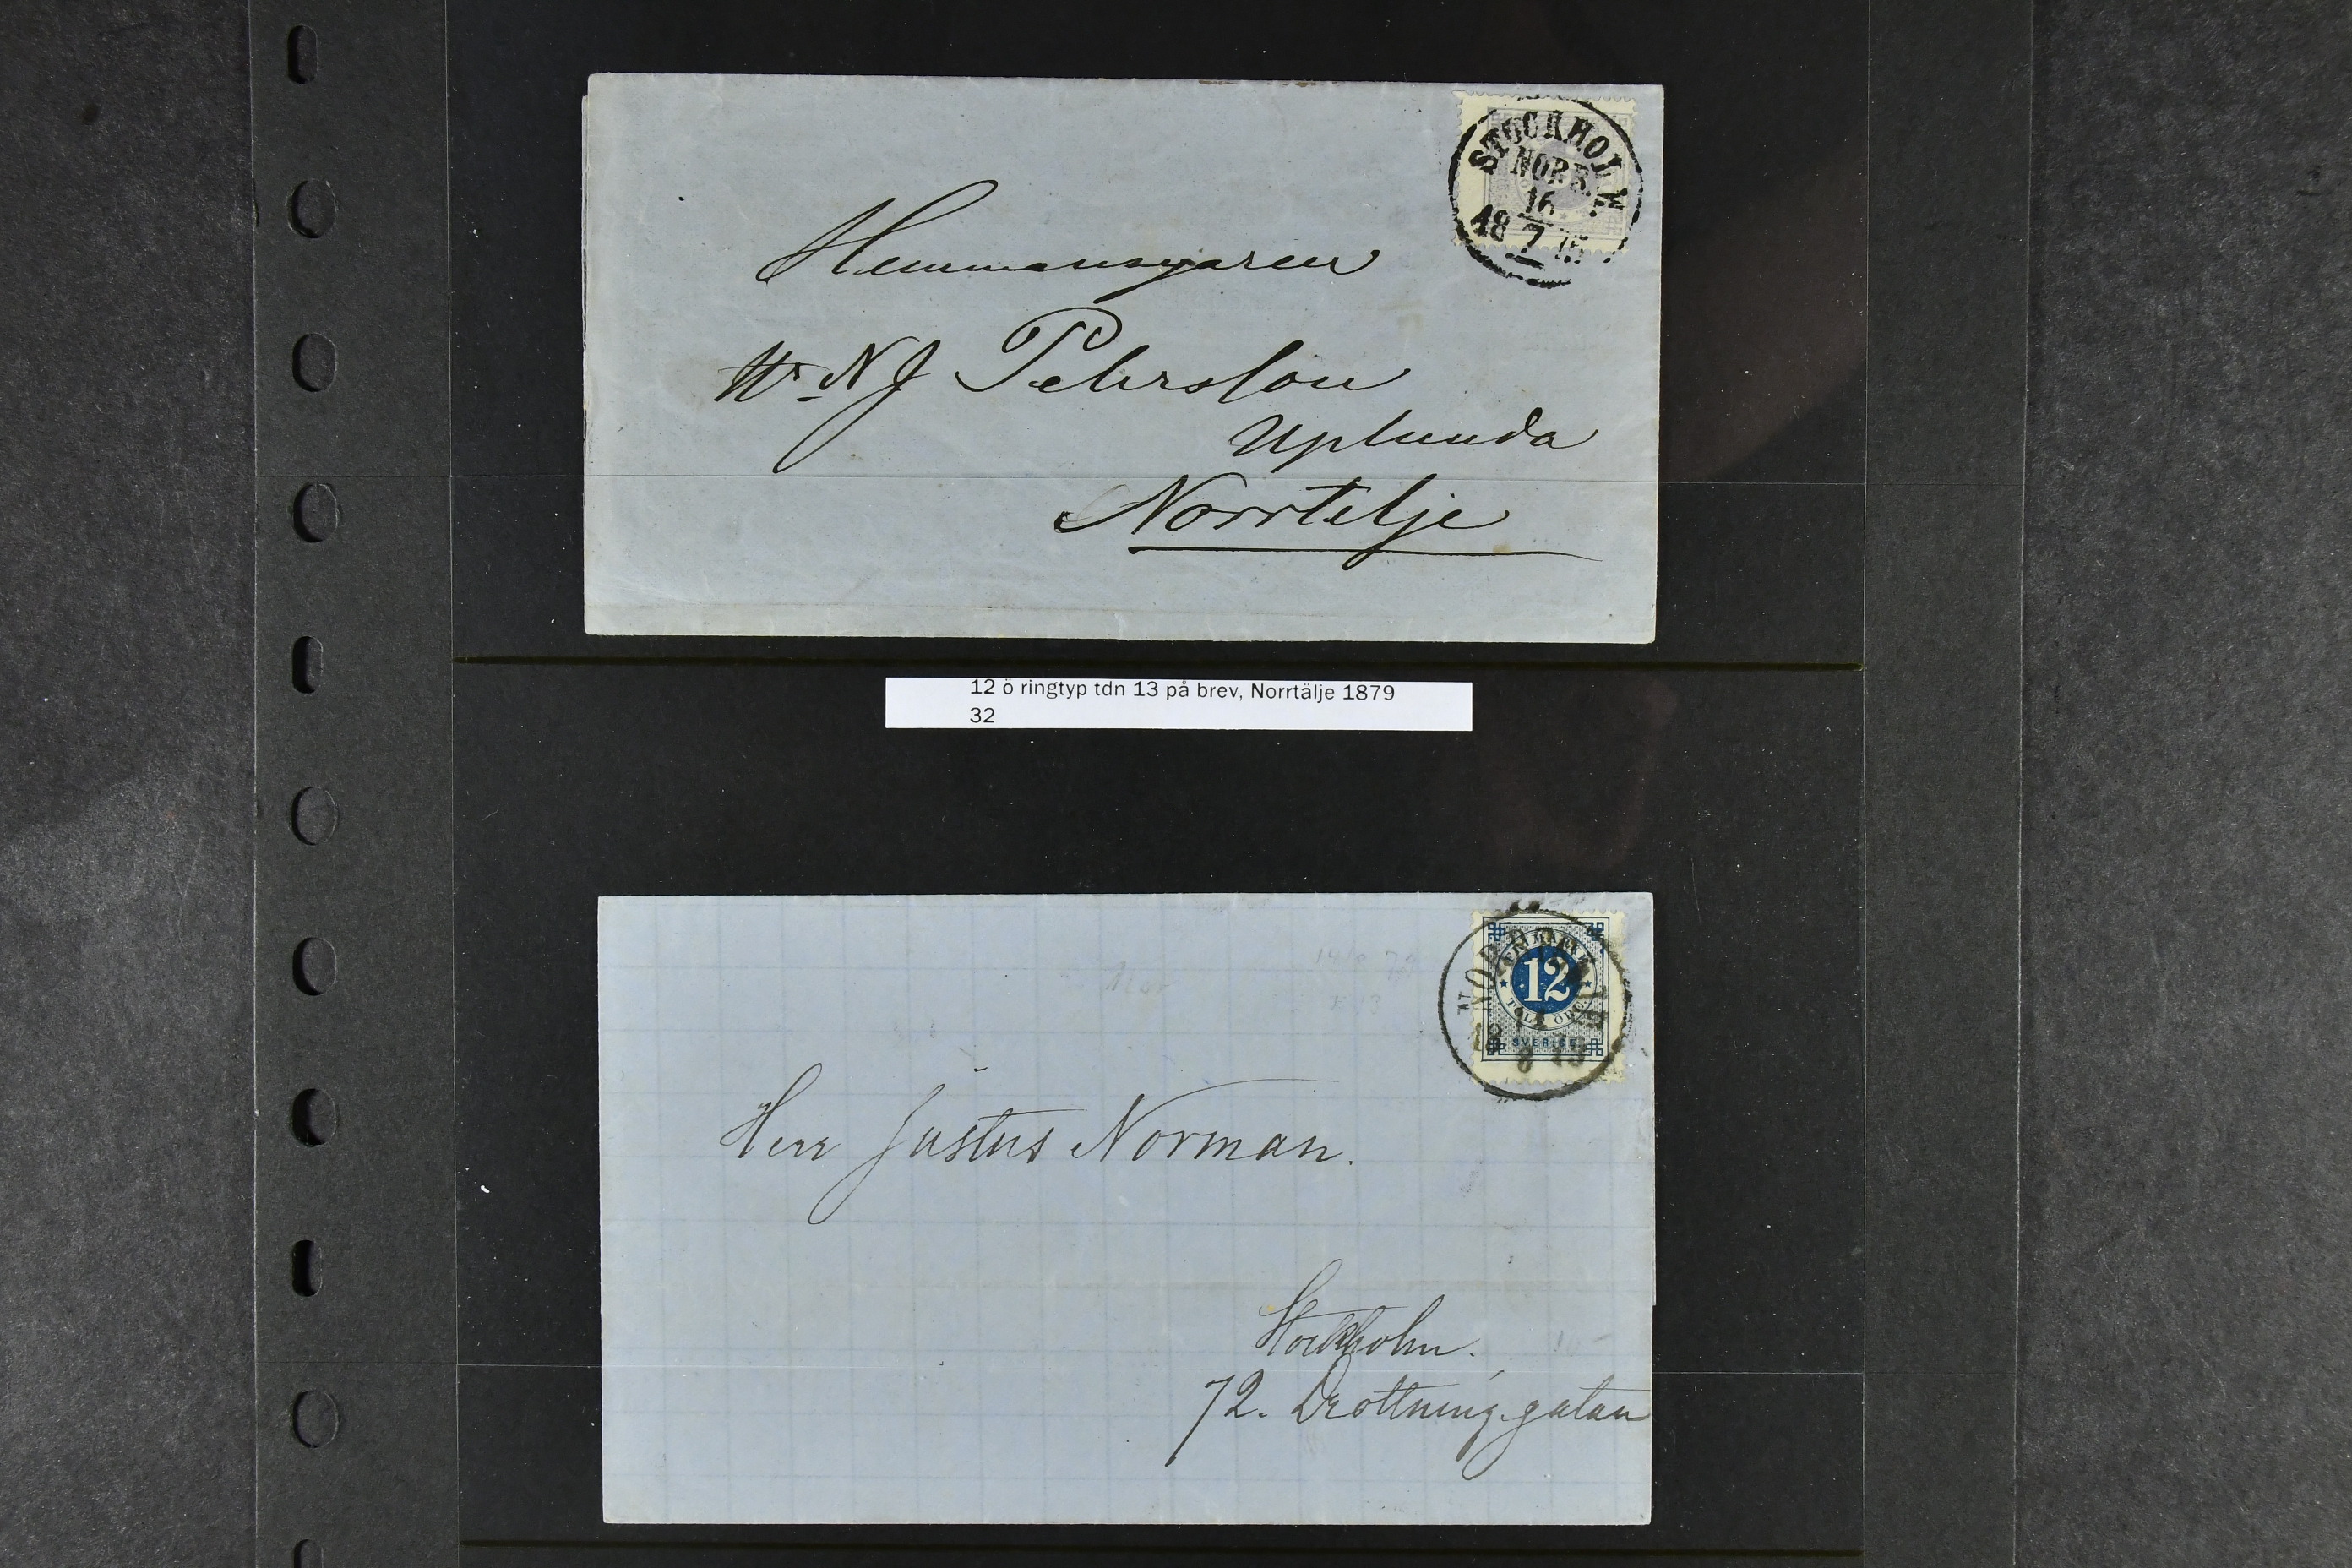 STOCKHOLM
NORR.
16
18 7
Hemmansegaren
Hr. N J Pehrsson
Uplunda
Norrtelje
12 ö ringtyp tdn 13 på brev, Norrtälje 1879
32
12
TOLF ÖRE
SVERIGE
Herr Justus Norman.
Stockholm.
72. Drottning.gatan